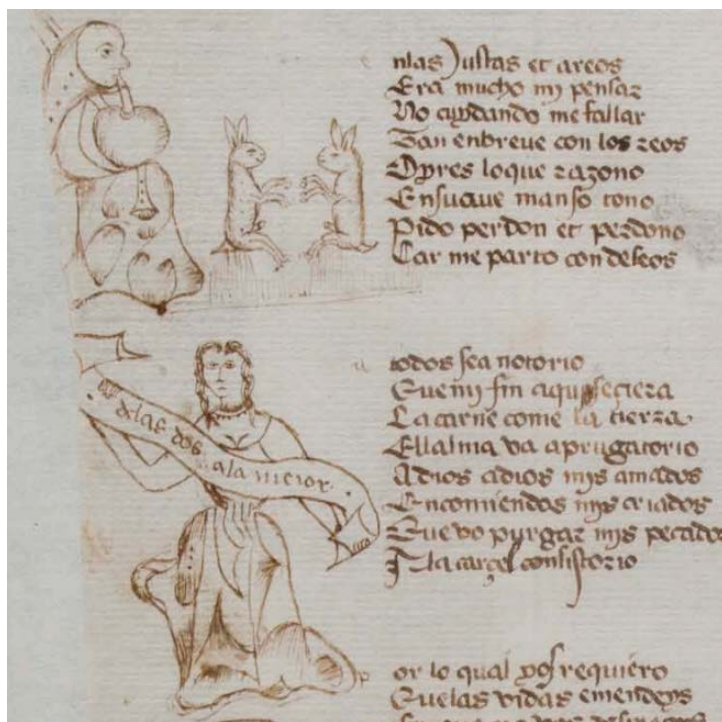 nlas Justas et areos
Era mucho mj pensar
No cuydando me fallar
Tan enbreue con los reos
Oyres loque razono
Ensuaue manso tono
Pido perdon et perdono
Car me parto con deseos
todos sea notorio
Quemj fin aquj seçierra
La carne come la tierra
Ellalma va aprugatorio
Adios adios mjs amados
Encomiendos mjs criados
Que vo purgar mjs pecados
A la carçel consistorio
delas dos ala meior
or lo qual vos requiero
Quelas vidas emendeys